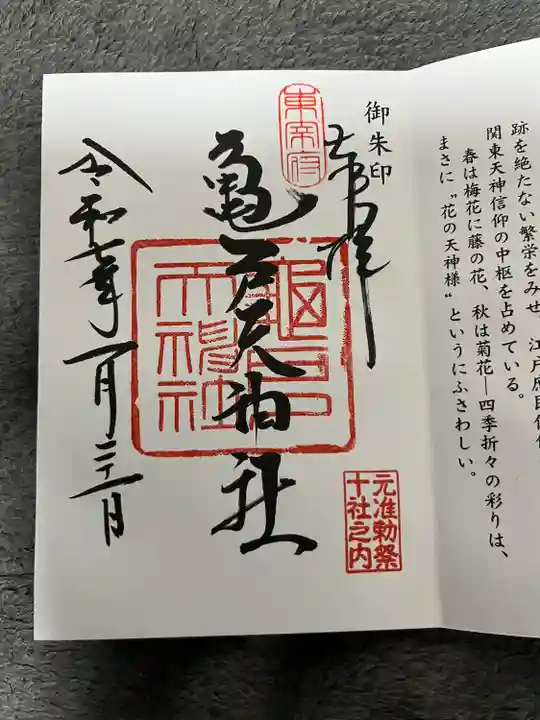 跡を絶たない繁栄をみせ、江戸庶民信仰
関東天神信仰の中枢を占めている。
春は梅花に藤の花、秋は菊花―四季折々の彩りは、
まさに〝花の天神様〟というにふさわしい。
御朱印
奉拝
東宰府
亀戸天神社
亀戸
天神社
元准勅祭
十社之内
令和七年一月二十一日